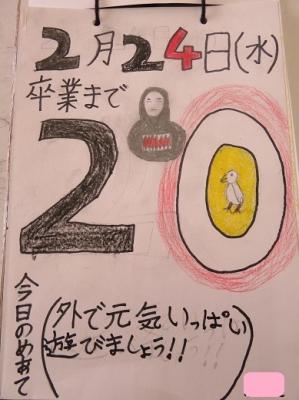 2月24日(水)
卒業まで
20
今日のめあて
(外で元気いっぱい
遊びましょう!!)